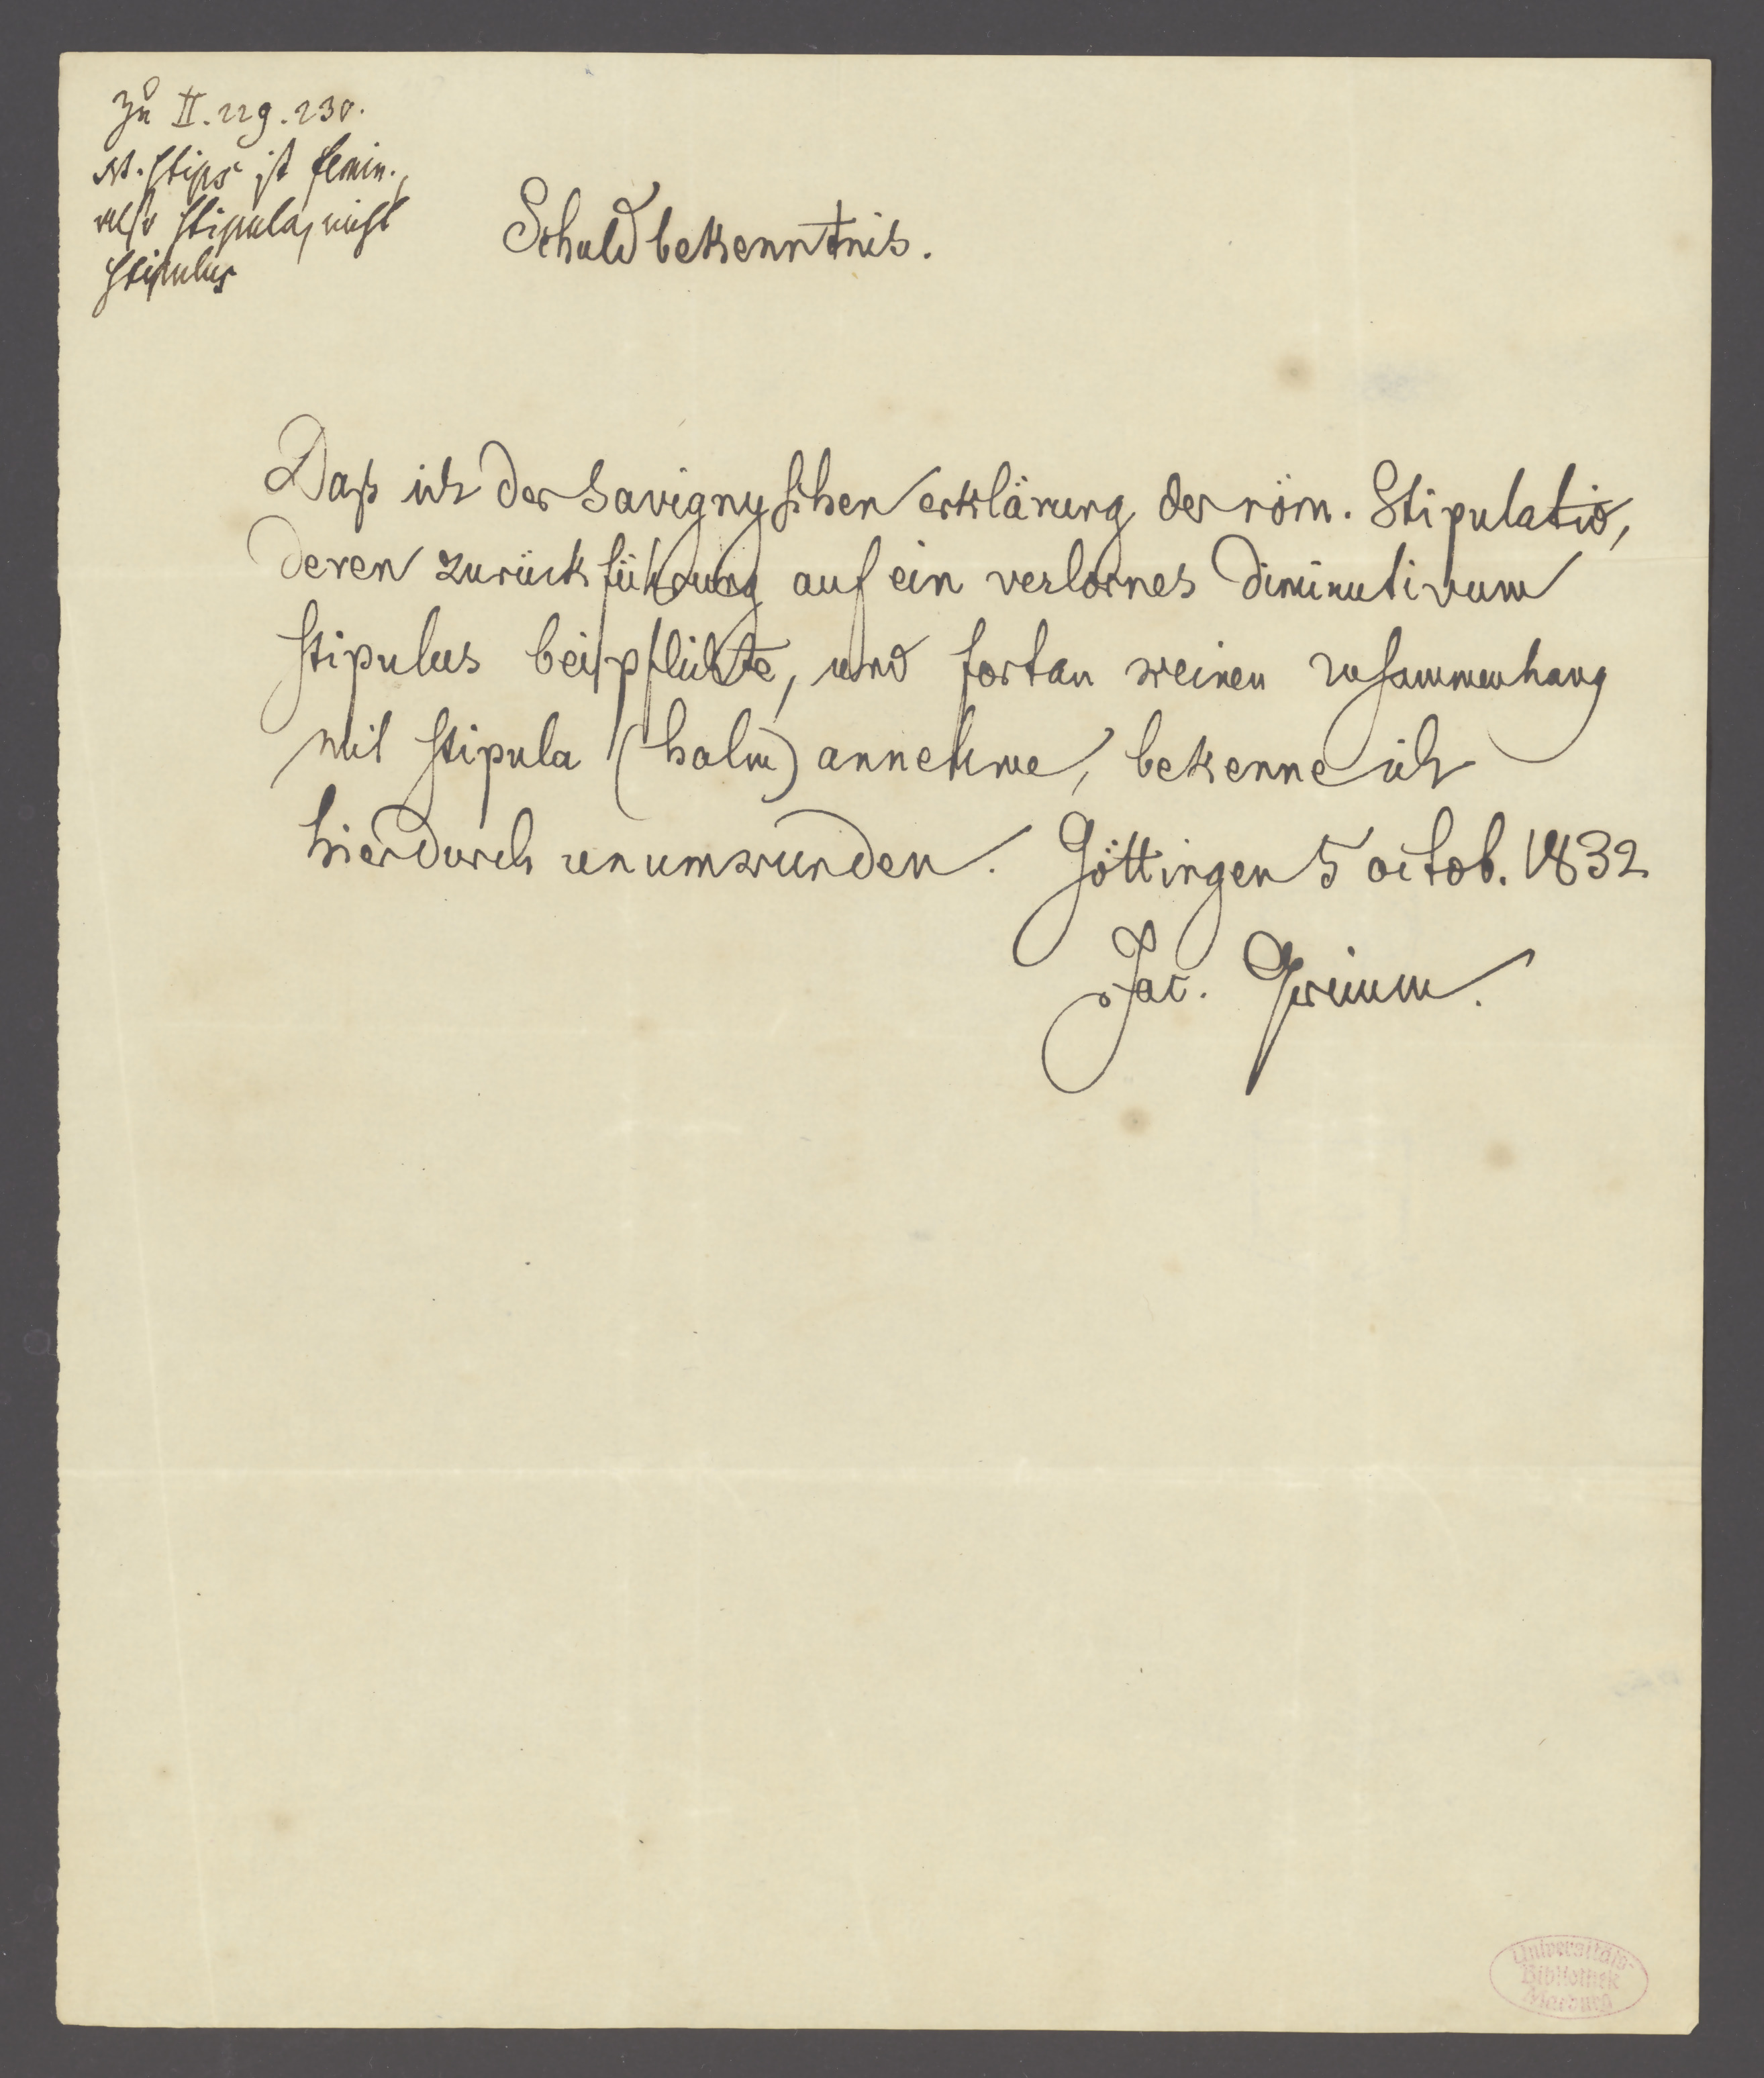 Zu II. 229. 230.
NB. stips ist femin.,
also stipula, nicht
stipulus
Schuldbekenntnis.
Daß ich der Savignyschen erklärung der röm. Stipulatio,
deren zurückführung auf ein verlornes diminutivum
stipulus beipflichte, und fortan keinen zusammenhang
mit stipula (halm) annehme, bekenne ich
hierdurch unumwunden. Göttingen 5 octob. 1832
Jac. Grimm.
Universitäts-
Bibliothek
Marburg